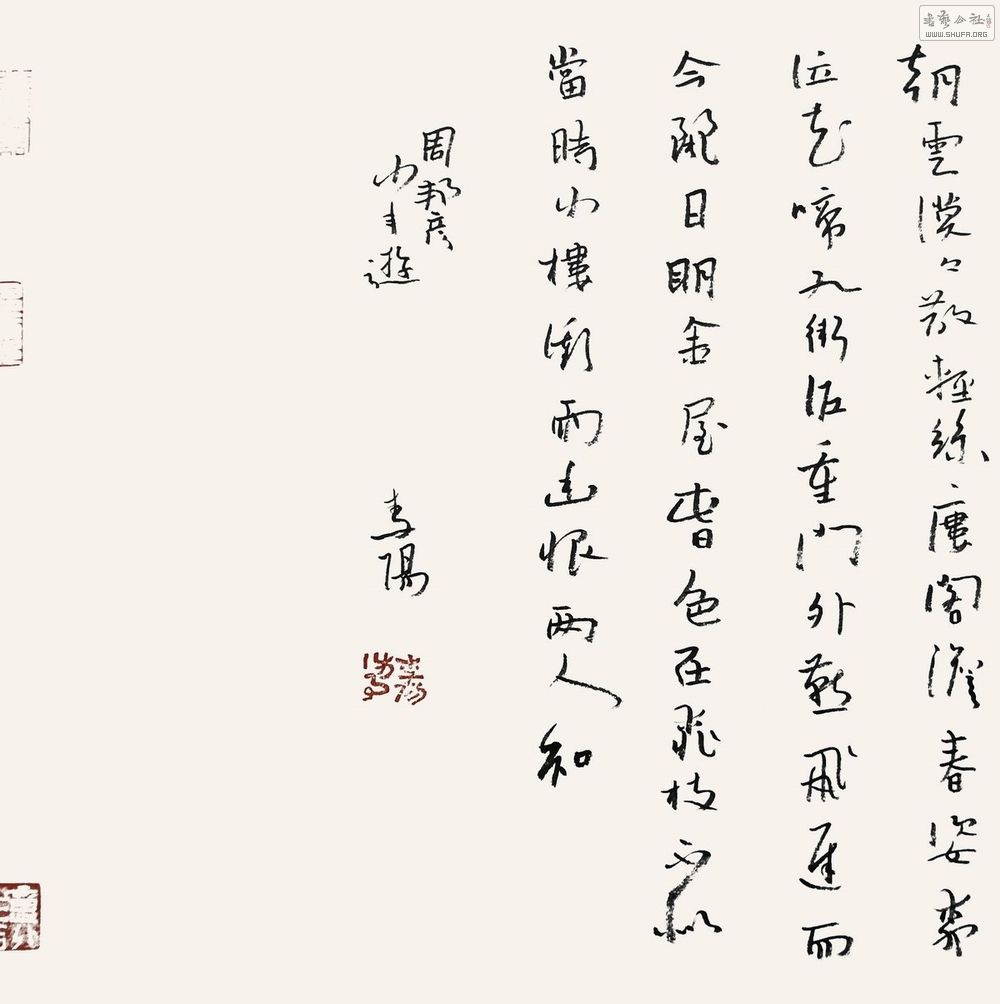 朝雲漠々散輕絲廔閣澹春姿桺
泣花啼九街泥重門外燕飛遲而
今麗日明金屋春色在桃枝不似
當時小樓衝雨幽恨兩人知
周邦彥
少年遊
書藝公社
WWW.SHUFA.ORG